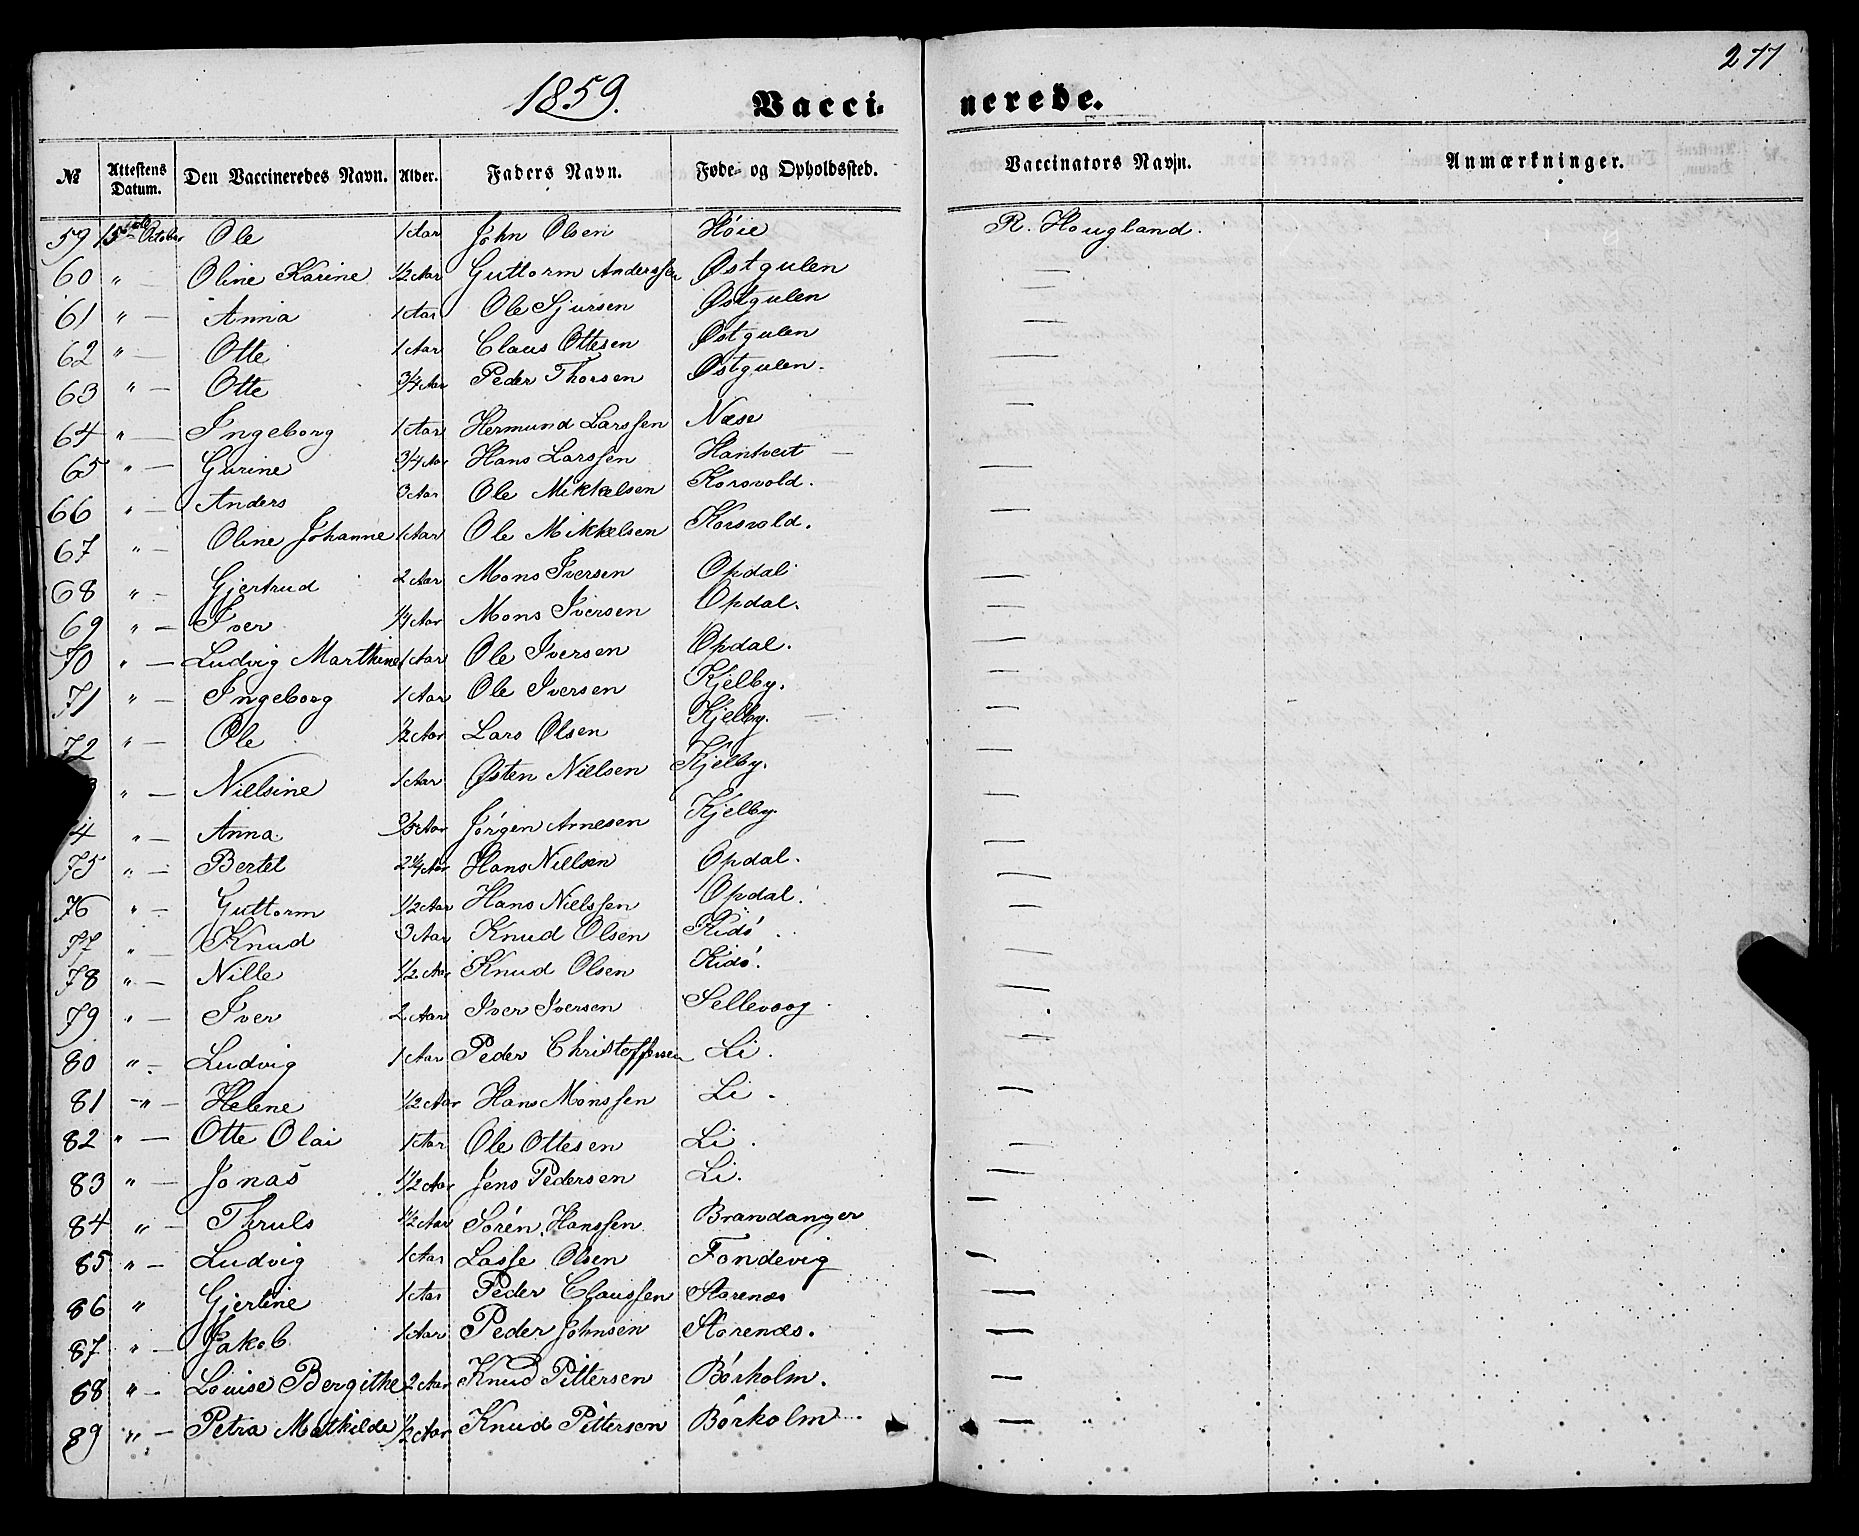 277
1859. Vaccinerede.
№ Attestens Datum. Den Vaccineredes Navn. Alder. Faders Navn. Føde- og Opholdssted. Vaccinators Navn. Anmærkninger.
59 15de October Ole 1 Aar John Olsen Høie R. Hougland.
60 " — Oline Karine 1/2 Aar Guttorm Anderssen Østgulen —
61 " — Anna 1 Aar Ole Sjursen Østgulen —
62 " — Otte 1 Aar Claus Ottesen Østgulen —
63 " — Otte 3/4 Aar Peder Thorsen Østgulen. —
64 " — Ingeborg 1 Aar Hermund Larssen Næse —
65 " — Gurine 3/4 Aar Hans Larssen Hantveit —
66 " — Anders 3 Aar Ole Mikkelsen Korsvold. —
67 " — Oline Johanne 1 Aar Ole Mikkelsen Korsvold. —
68 " — Gjertrud 2 Aar Mons Iversen Opdal —
69 " — Iver 1/4 Aar Mons Iversen Opdal. —
70 " — Ludvig Marthines 1 Aar Ole Iversen Opdal. —
71 " — Ingeborg 1 Aar Ole Iversen Kjelby. —
72 " — Ole 1/2 Aar Lars Olsen Kjelby. —
3 " — Nielsine 1 Aar Østen Nielsen Kjelby. —
4 " — Anna Aar Jørgen Arnesen Kjelby. —
75 " — Bertel 2 1/4 Aar Hans Nielsen Opdal. —
76 " — Guttorm 1/2 Aar Hans Nielssen Opdal. —
77 " — Knud 3 Aar Knud Olsen Kidø. —
78 " — Nille 1/2 Aar Knud Olsen Kidø. —
79 " — Iver 2 Aar Iver Iversen Sellevoog —
80 " — Ludvig 1 Aar Peder Christoffersen Li. —
81 " — Helene 1/2 Aar Hans Monssen Li. —
82 " — Otte Olai 1 Aar Ole Ottesen Li. —
83 " — Jonas 1/2 Aar Jens Pedersen Li. —
84 " — Thruls 1/2 Aar Søren Hanssen Brandanger —
85 " — Ludvig 1 Aar Lasse Olsen Fondevig —
86 " Gjertine 1 Aar Peder Claussen Storenæs —
87 " — Jakob. 1 Aar Peder Johnsen Storenæs. —
88 " — Louise Bergithe 2 Aar Knud Pittersen Børholm. —
89 " — Petra Mathilde 1/2 Aar Knud Pittersen Børholm. —